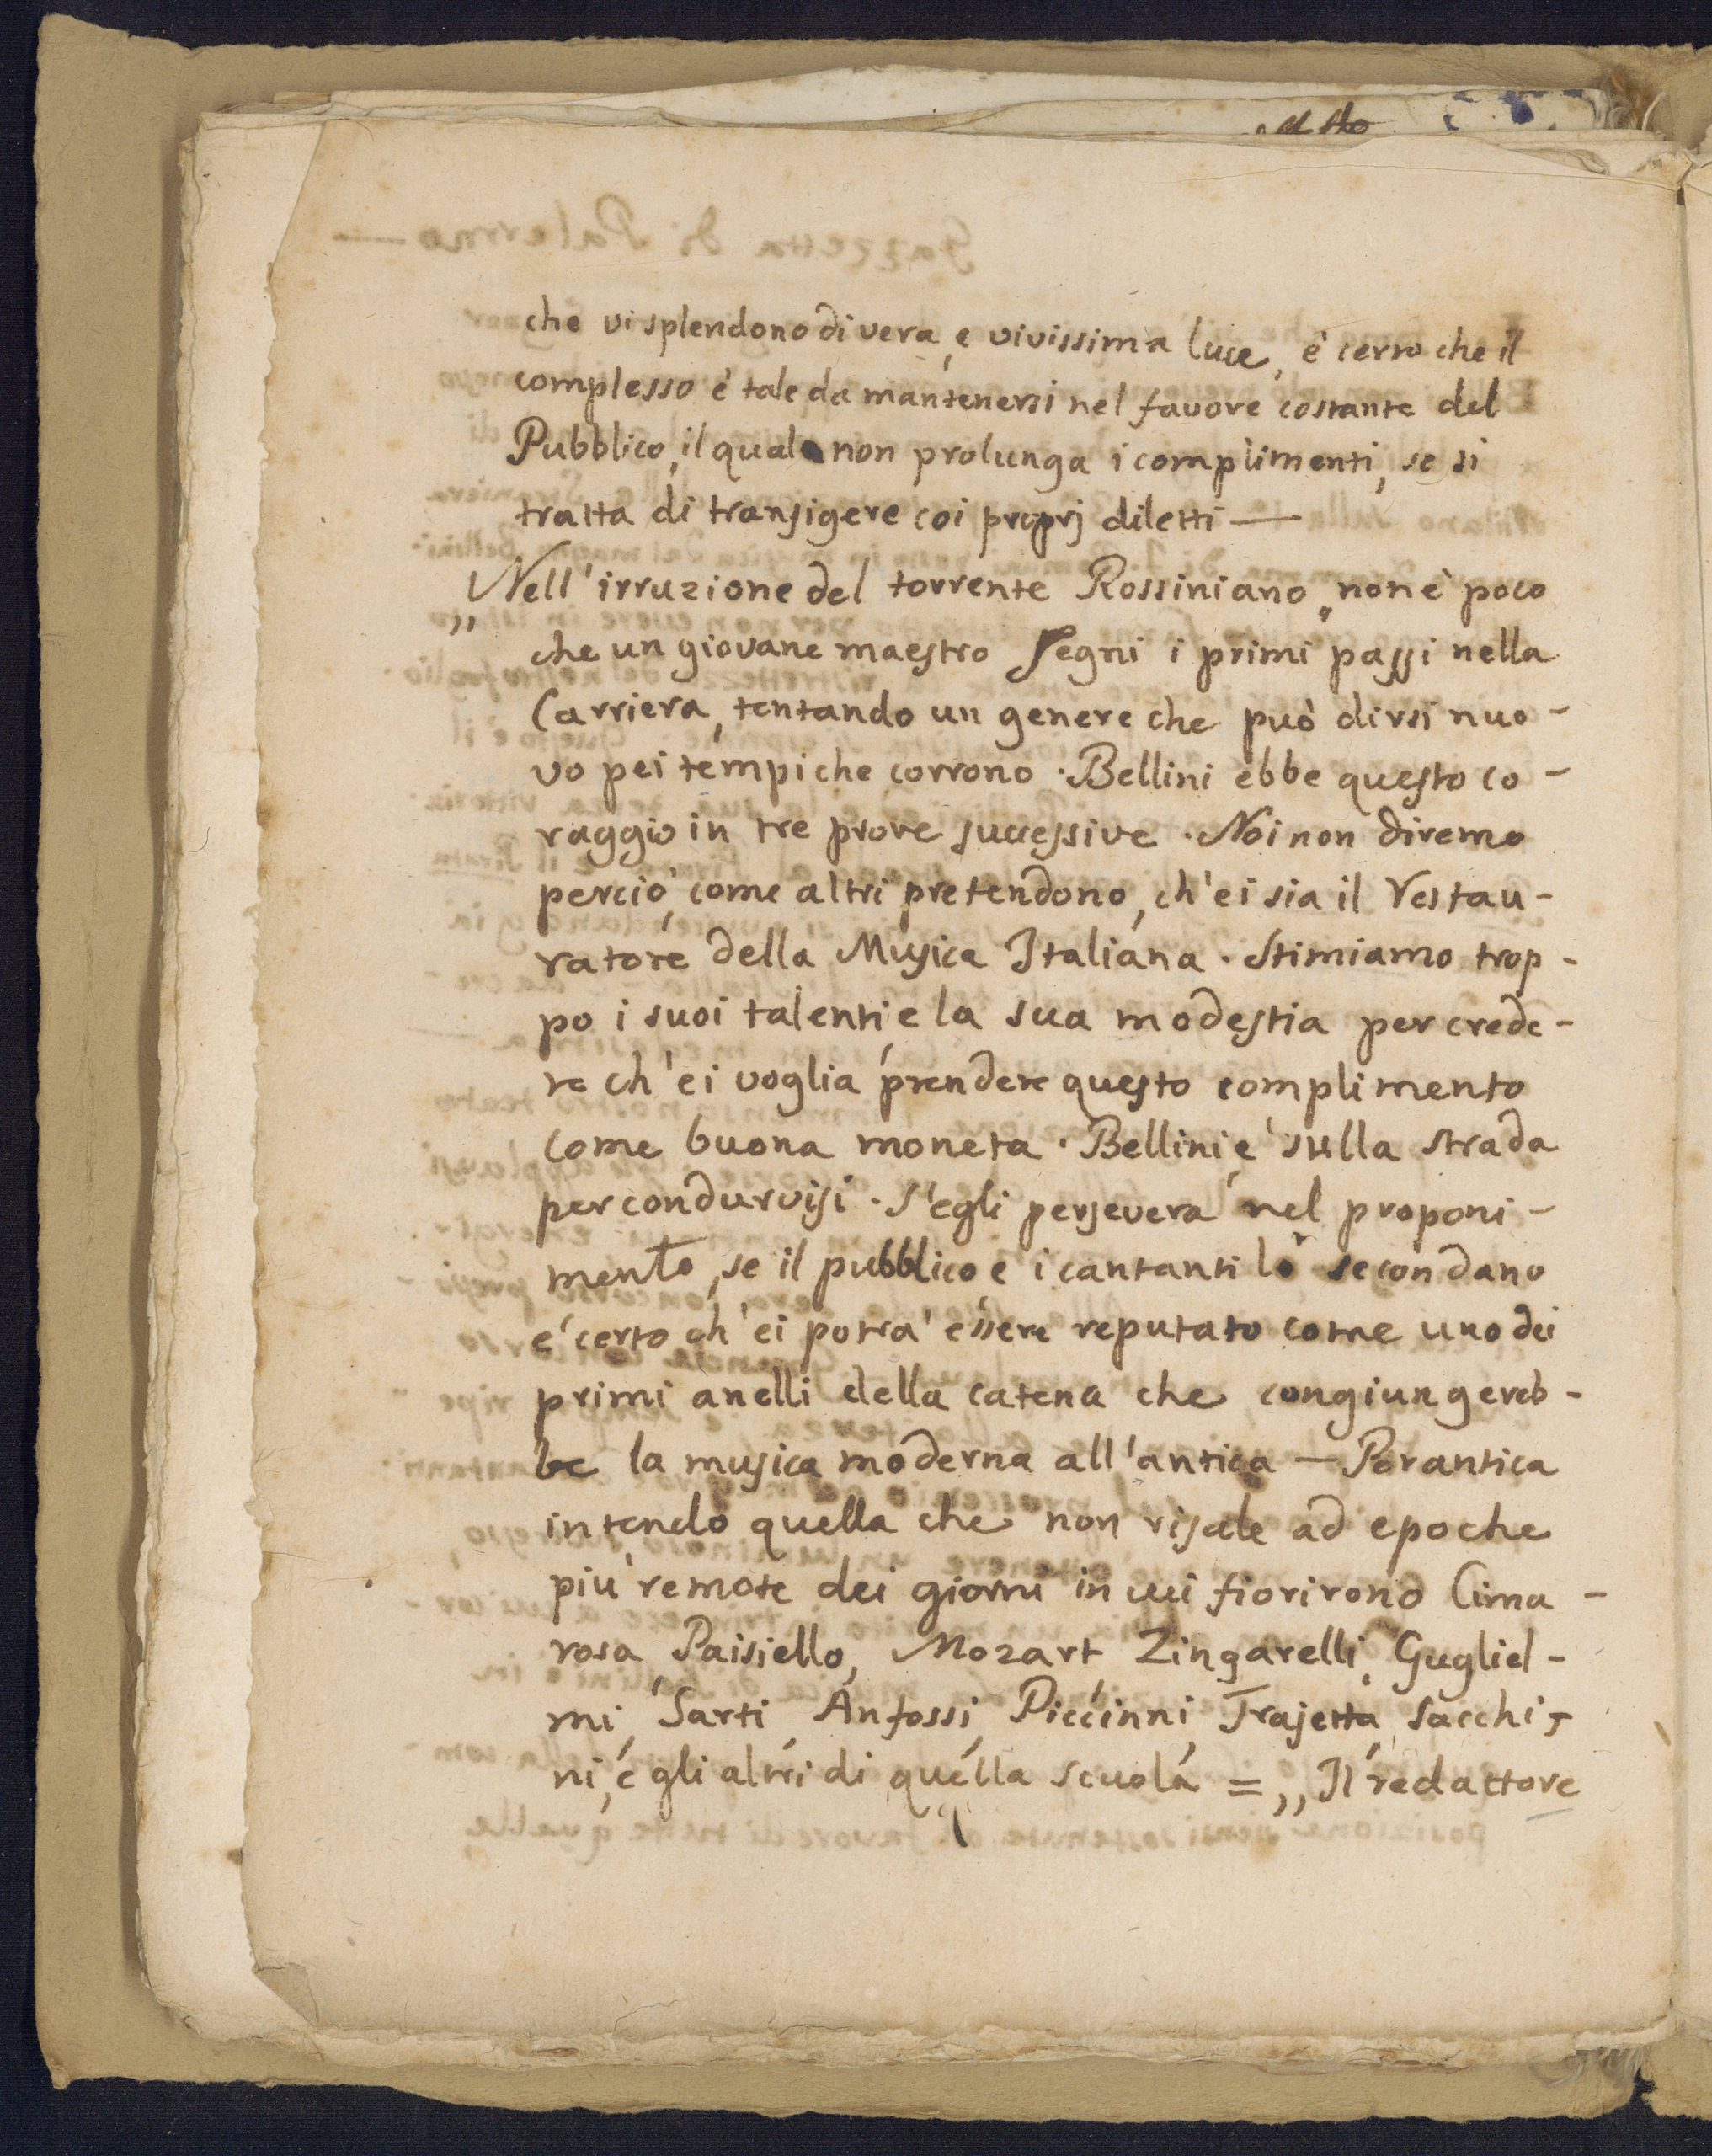 che vi splendono di vera, e vivissima luce, è certo che il
complesso è tale da mantenersi nel favore costante del
Pubblico, il quale non prolunga i complimenti, se si
tratta di transigere coi proprj diletti —
„Nell'irruzione del torrente Rossiniano, non è poco
che un giovane maestro segni i primi passi nella
Carriera, tentando un genere che può dirsi nuo-
vo pei tempi che corrono. Bellini ebbe questo co-
raggio in tre prove successive. Noi non diremo
perciò, come altri pretendono, ch'ei sia il restau-
ratore della Musica Italiana. Stimiamo trop-
po i suoi talenti, e la sua modestia per crede-
re ch'ei voglia prendere questo complimento
come buona moneta. Bellini è sulla strada
per condurvisi. S'egli persevera nel proponi-
mento, se il pubblico, e i cantanti lo secondano
è certo ch'ei potrà essere reputato come uno dei
primi anelli della catena che congiungereb-
be la musica moderna all'antica — Per antica
intendo quella che non risale ad epoche
più remote dei giorni in cui fiorirono Cima-
rosa, Paisiello, Mozart, Zingarelli, Gugliel-
mi, Sarti, Anfossi, Piccinni, Trajetta, Sacchi-
ni, e gli altri di quella scuola =„ Il redattore